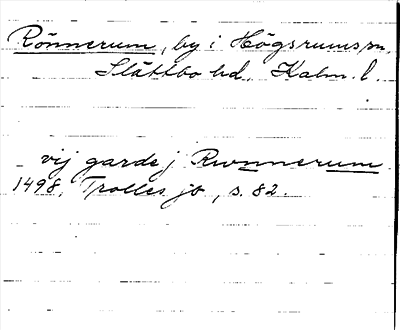 Rönnerum, by i Högsrums sn.
Slättbo hd. Kalm. l.
vij garde j Rwnnerum
1498. Trolles jb, s. 82.